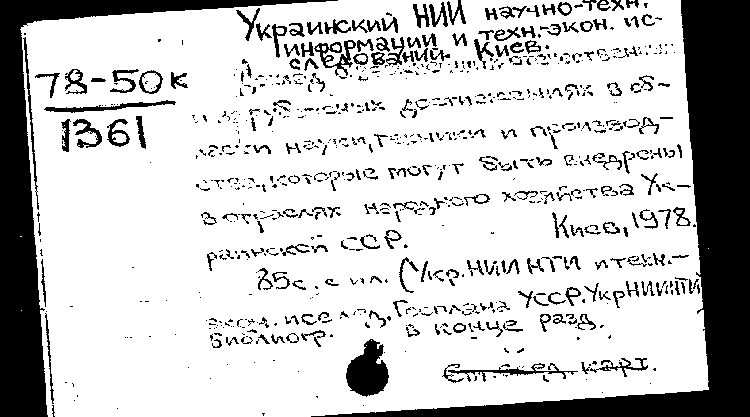 Украинский НИИ научно-техн.
информации и техн.-экон. ис-
следований. Киев.
Доклад о отечественных
и зарубежных достижениях в об-
ласти науки, техники и производ-
ства, которые могут быть внедрены
в отраслях народного хозяйства Ук-
раинской ССР. Киев, 1978.
78-50к
1361
85с. с ил. (Укр. НИИ НТИ и техн.-
экон. исслед. Госплана УССР. УкрНИИНТИ
Библиогр. в конце разд.
Ст. след. карт.